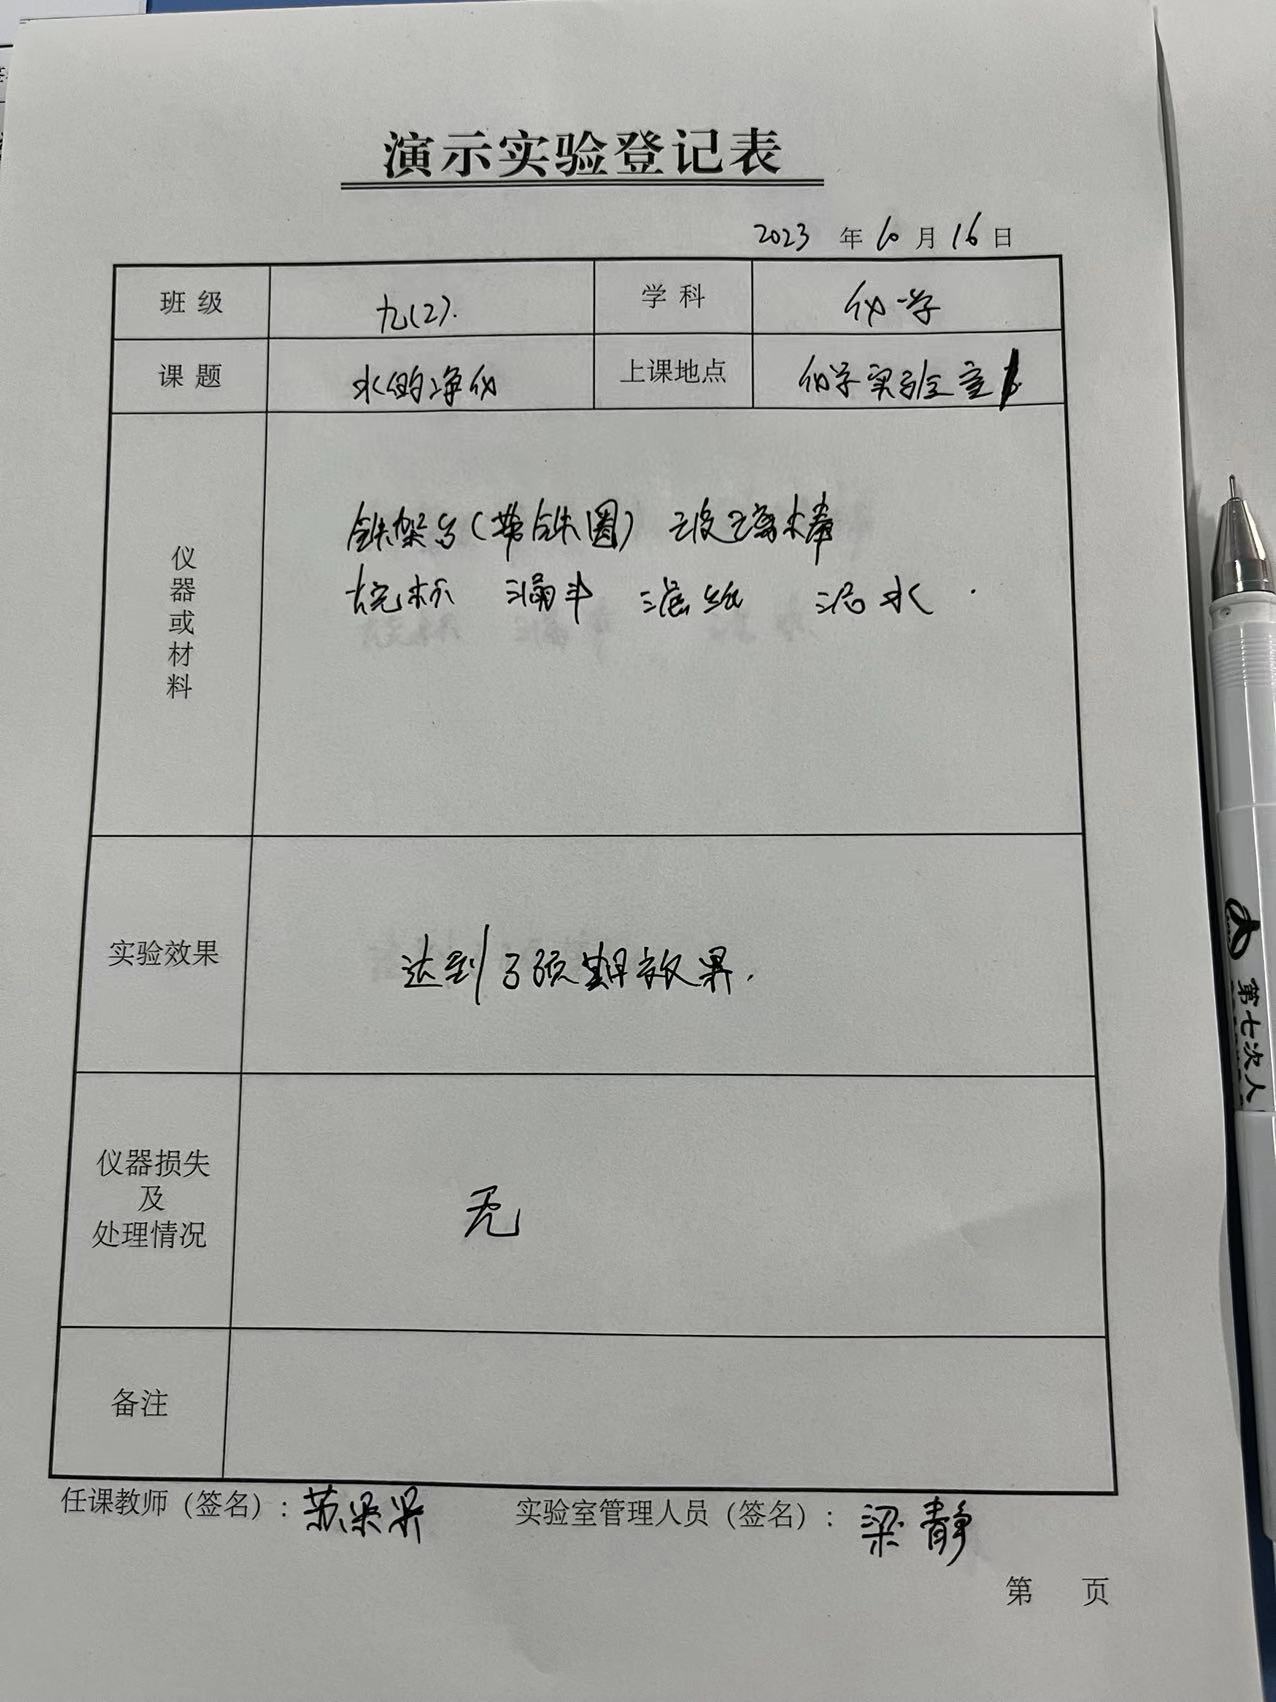 演示实验登记表
2023 年 10 月 16 日
班级 九(2). 学科 化学
课题 水的净化 上课地点 化学实验室
仪器或材料
铁架台(带铁圈) 玻璃棒
烧杯 漏斗 滤纸 泥水.
实验效果 达到了预期效果.
仪器损失
及
处理情况
无
备注
任课教师(签名): 苏果果 实验室管理人员(签名): 梁静
第 页
第七次人